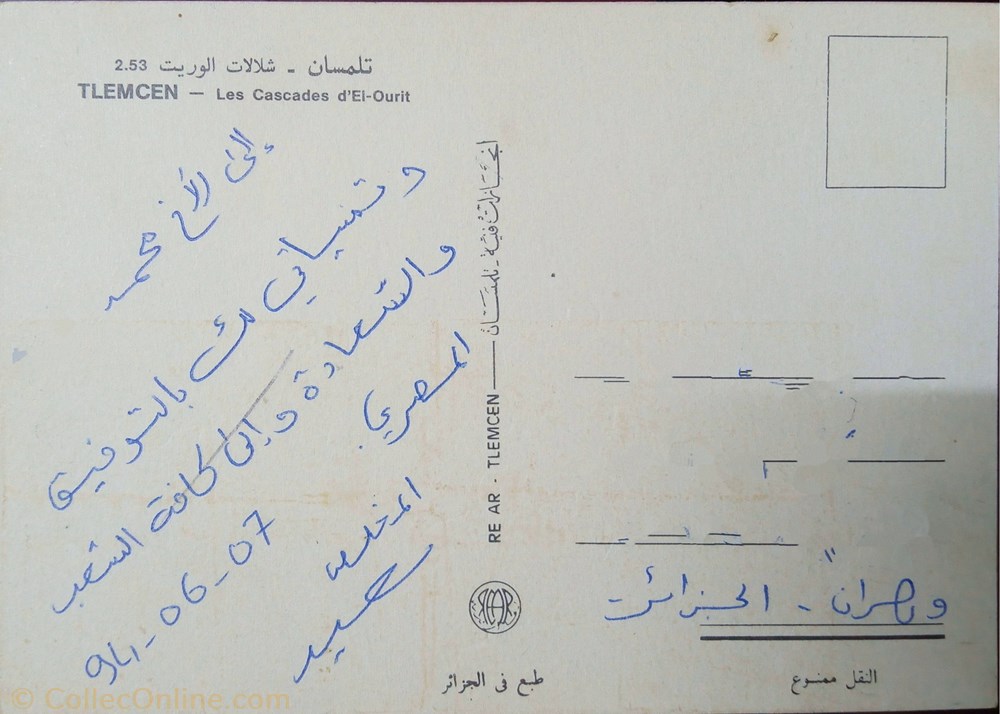 تلمسان - شلالات الوريت 2.53
TLEMCEN — Les Cascades d'El-Ourit
إلى الأخ محمد
وتمنياتي لك بالتوفيق
والسعادة وإلى كافة الشعب
المصري.
المخلص
94-06-07
انجازات فنية - تلمسان
RE AR - TLEMCEN
REAR
وهران - الجزائر
طبع في الجزائر
النقل ممنوع
© CollecOnline.com